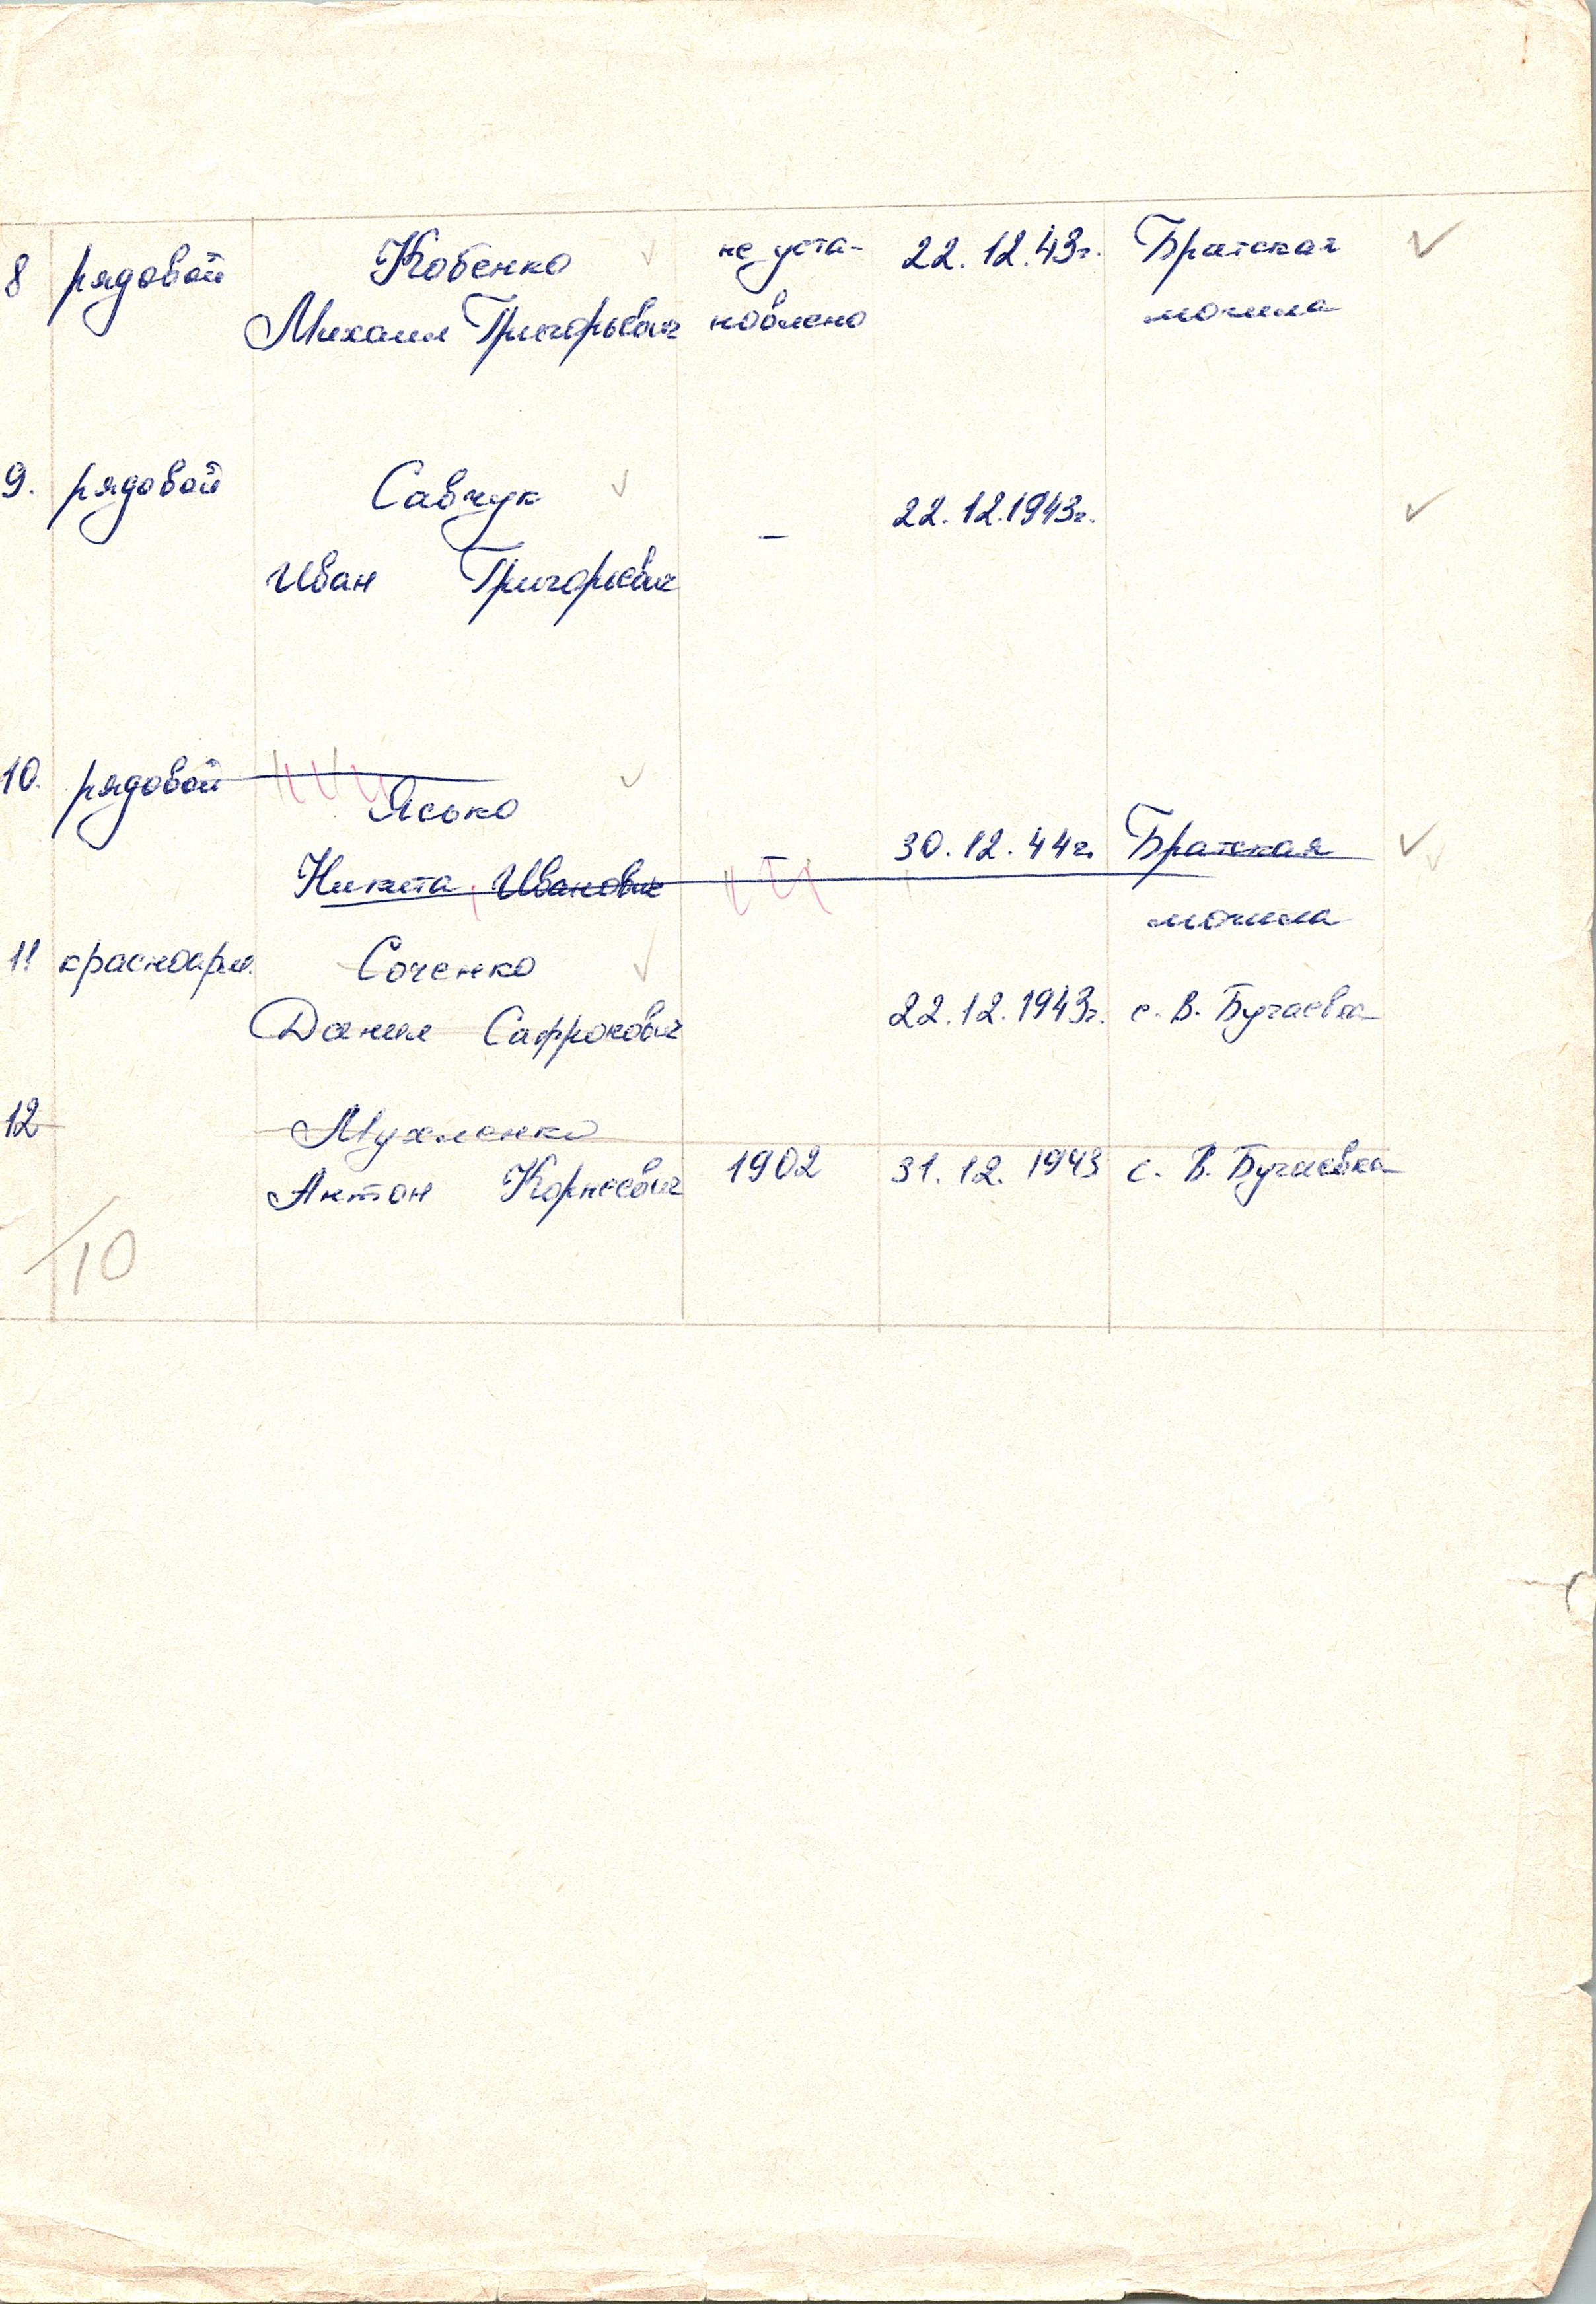 8 рядовой Кобенко не уста- 22.12.43г. Братская
Михаил Григорьевич новлено могила
9. рядовой Савчук 22.12.1943г.
Иван Григорьевич –
10. рядовой Ясько
Никита Иванович – 30.12.44г. Братская
могила
11 красноарм. Соченко
Данил Сафронович 22.12.1943г. с. В. Бугаевка
12 Мухленко
Антон Корнеевич 1902 31.12.1943 с. В. Бугаевка
10